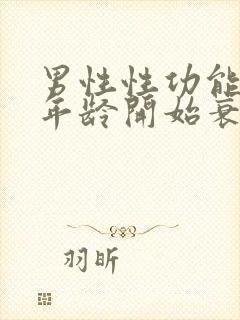 男性性功能
年龄開始衰
羽昕